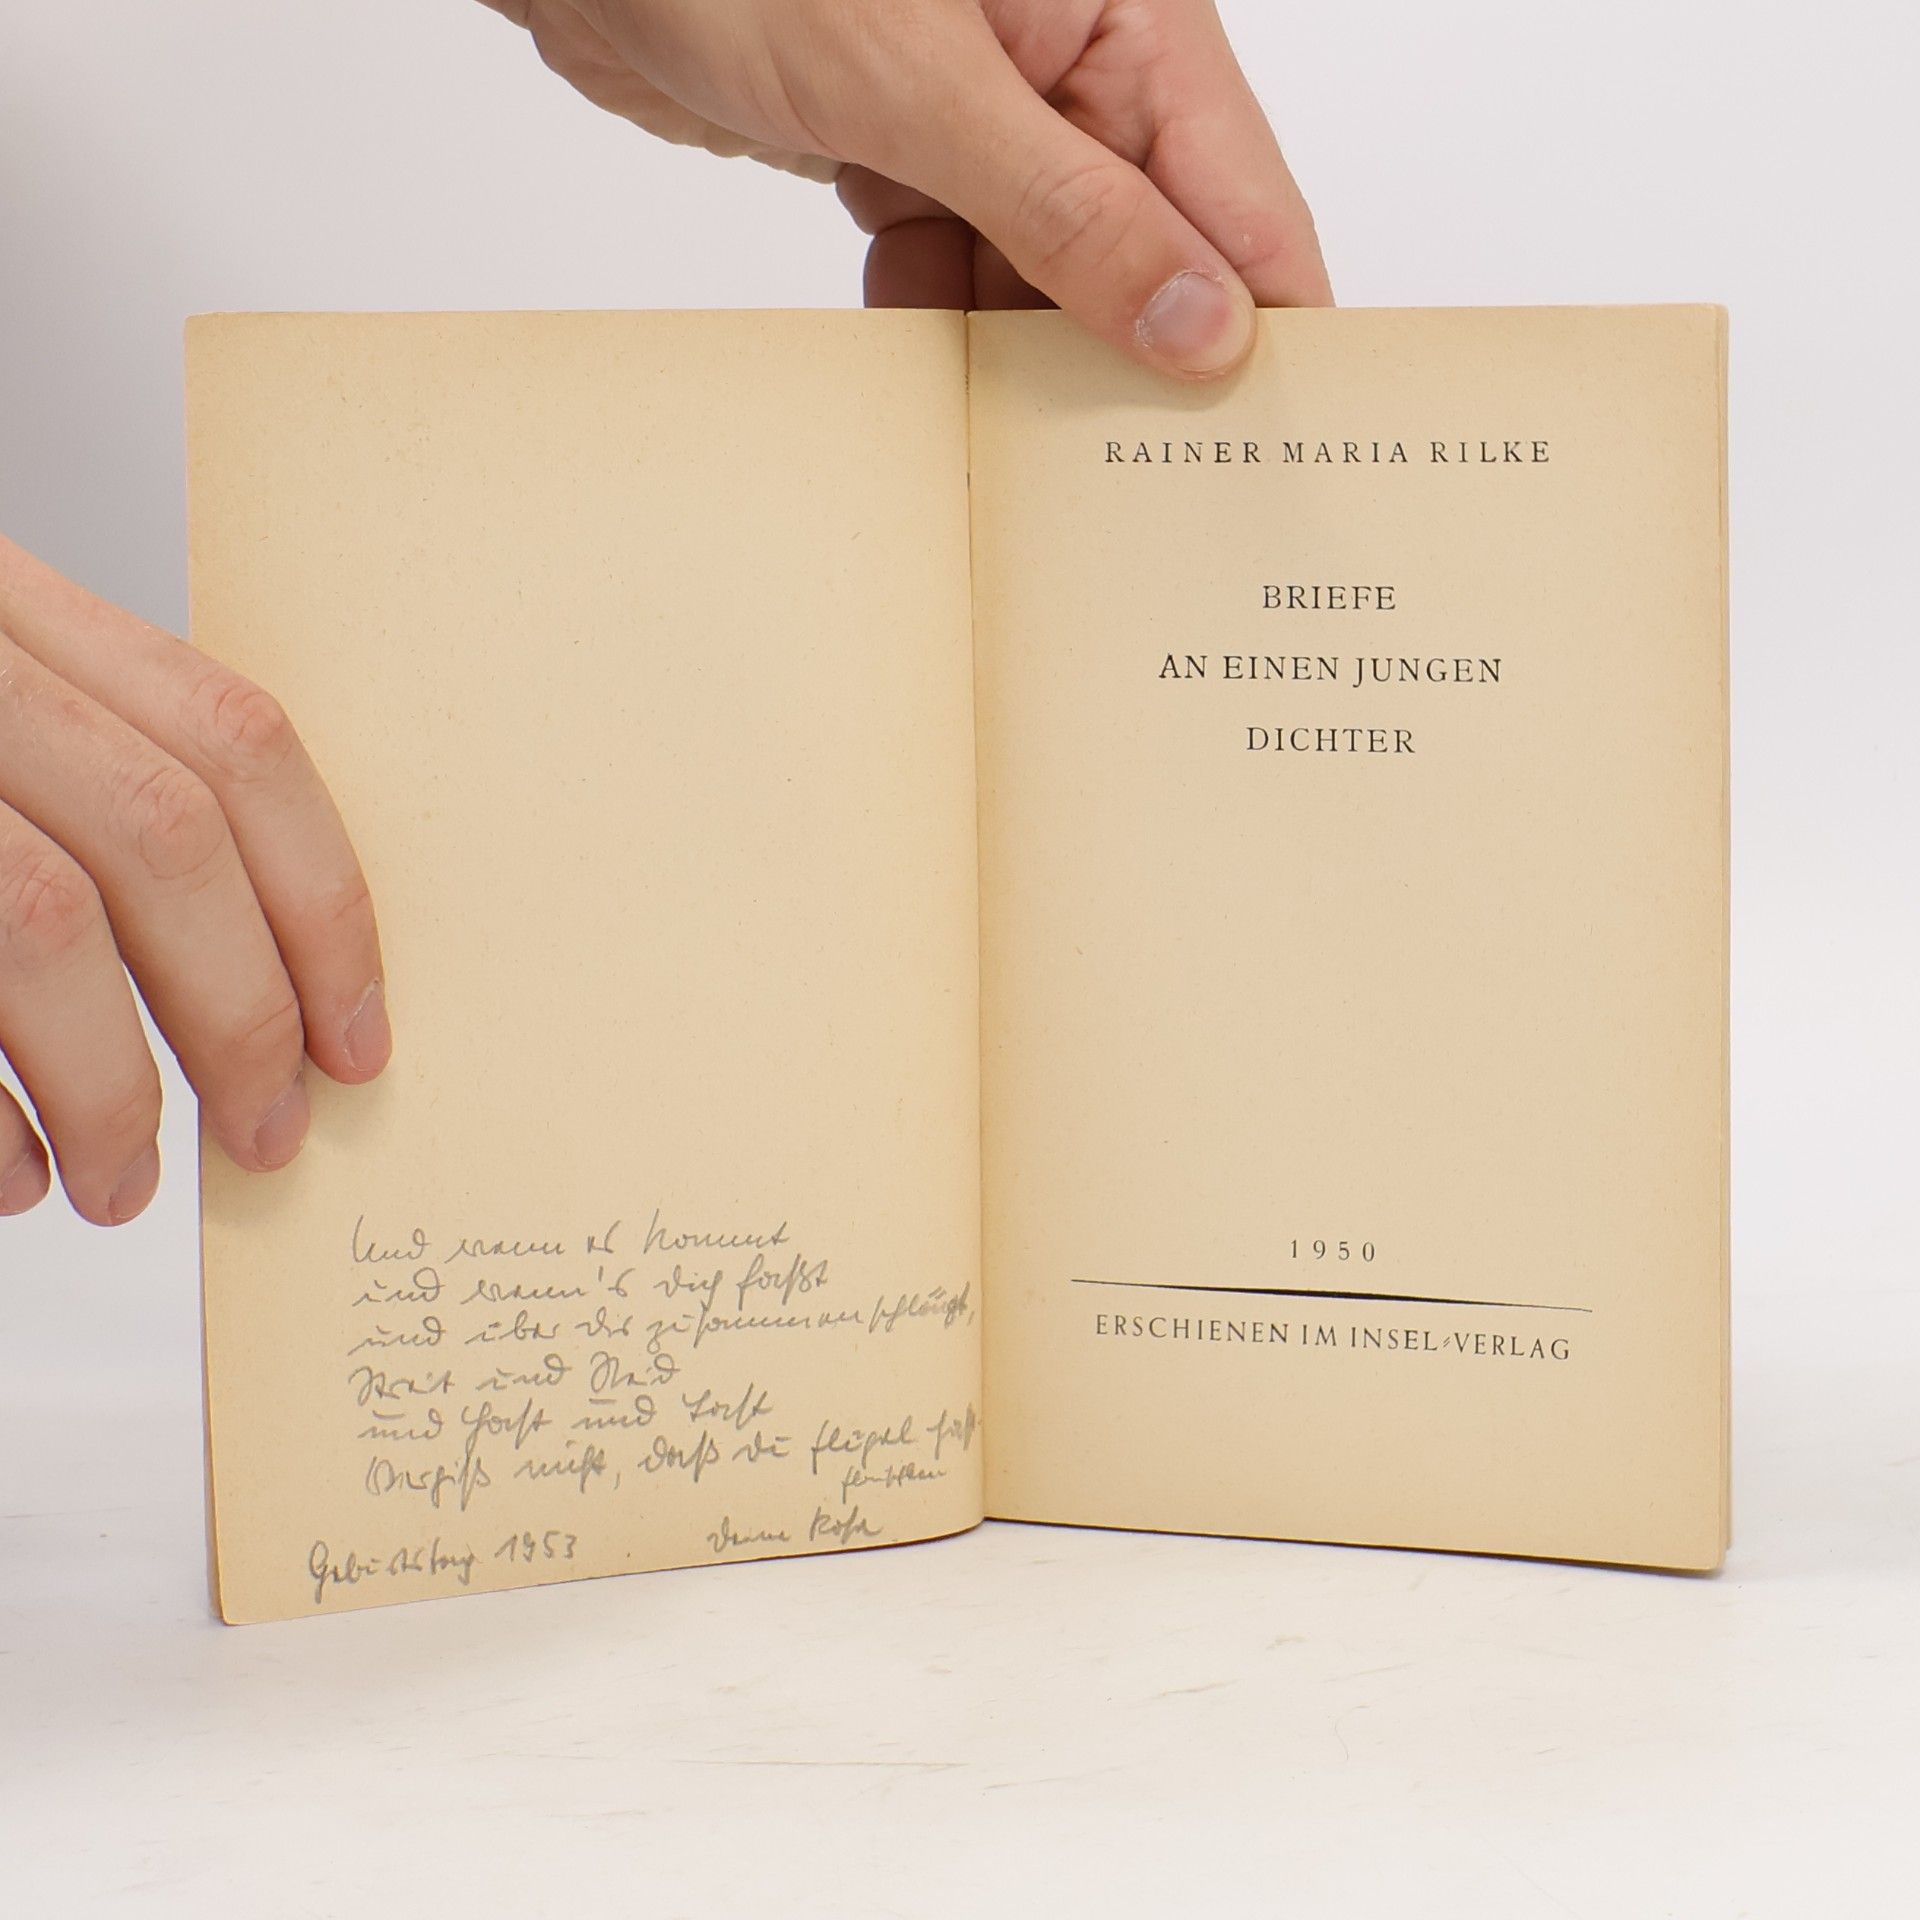 Und wenn es kommt
und wenn's Dich faßt
und über Dir zusammenschlägt,
Streit und Neid
und Hast und Last
Vergiß nicht, daß du Flügel hast.
Deine Rosa
Geburtstag 1953
RAINER MARIA RILKE
BRIEFE
AN EINEN JUNGEN
DICHTER
1950
ERSCHIENEN IM INSEL-VERLAG